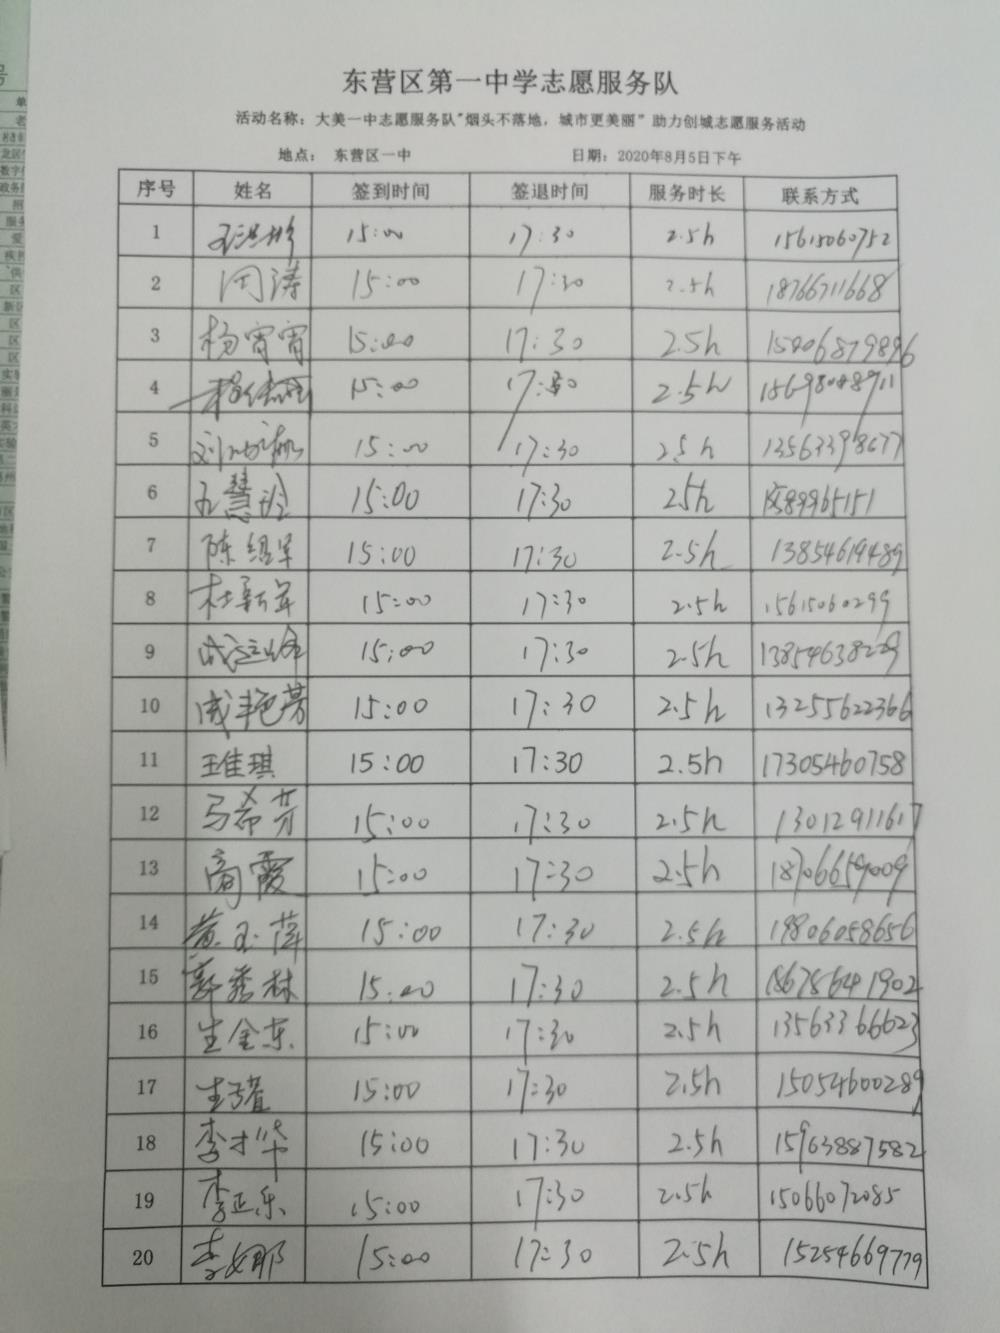 东营区第一中学志愿服务队
活动名称：大美一中志愿服务队"烟头不落地，城市更美丽" 助力创城志愿服务活动
地点： 东营区一中 日期：2020年8月5日下午
序号 姓名 签到时间 签退时间 服务时长 联系方式
1 15:00 17:30 2.5h 15615060752
2 周涛 15:00 17:30 2.5h 18766711668
3 杨宵宵 15:00 17:30 2.5h 15006879896
4 15:00 17:30 2.5h
5 15:00 17:30 2.5h 13563398677
6 王慧玲 15:00 17:30 2.5h
7 陈绍军 15:00 17:30 2.5h 13854619489
8 杜新军 15:00 17:30 2.5h 15615060299
9 15:00 17:30 2.5h 13854638229
10 成艳芳 15:00 17:30 2.5h 13255622366
11 王佳琪 15:00 17:30 2.5h 17305460758
12 马希芳 15:00 17:30 2.5h 13012911617
13 商霞 15:00 17:30 2.5h 18706659009
14 黄玉萍 15:00 17:30 2.5h 19806058656
15 郭秀林 15:00 17:30 2.5h 18678641902
16 生金东 15:00 17:30 2.5h 13563366623
17 15:00 17:30 2.5h 15054600289
18 李才华 15:00 17:30 2.5h 15963887582
19 李正乐 15:00 17:30 2.5h 15066072085
20 李娜 15:00 17:30 2.5h 15254669779